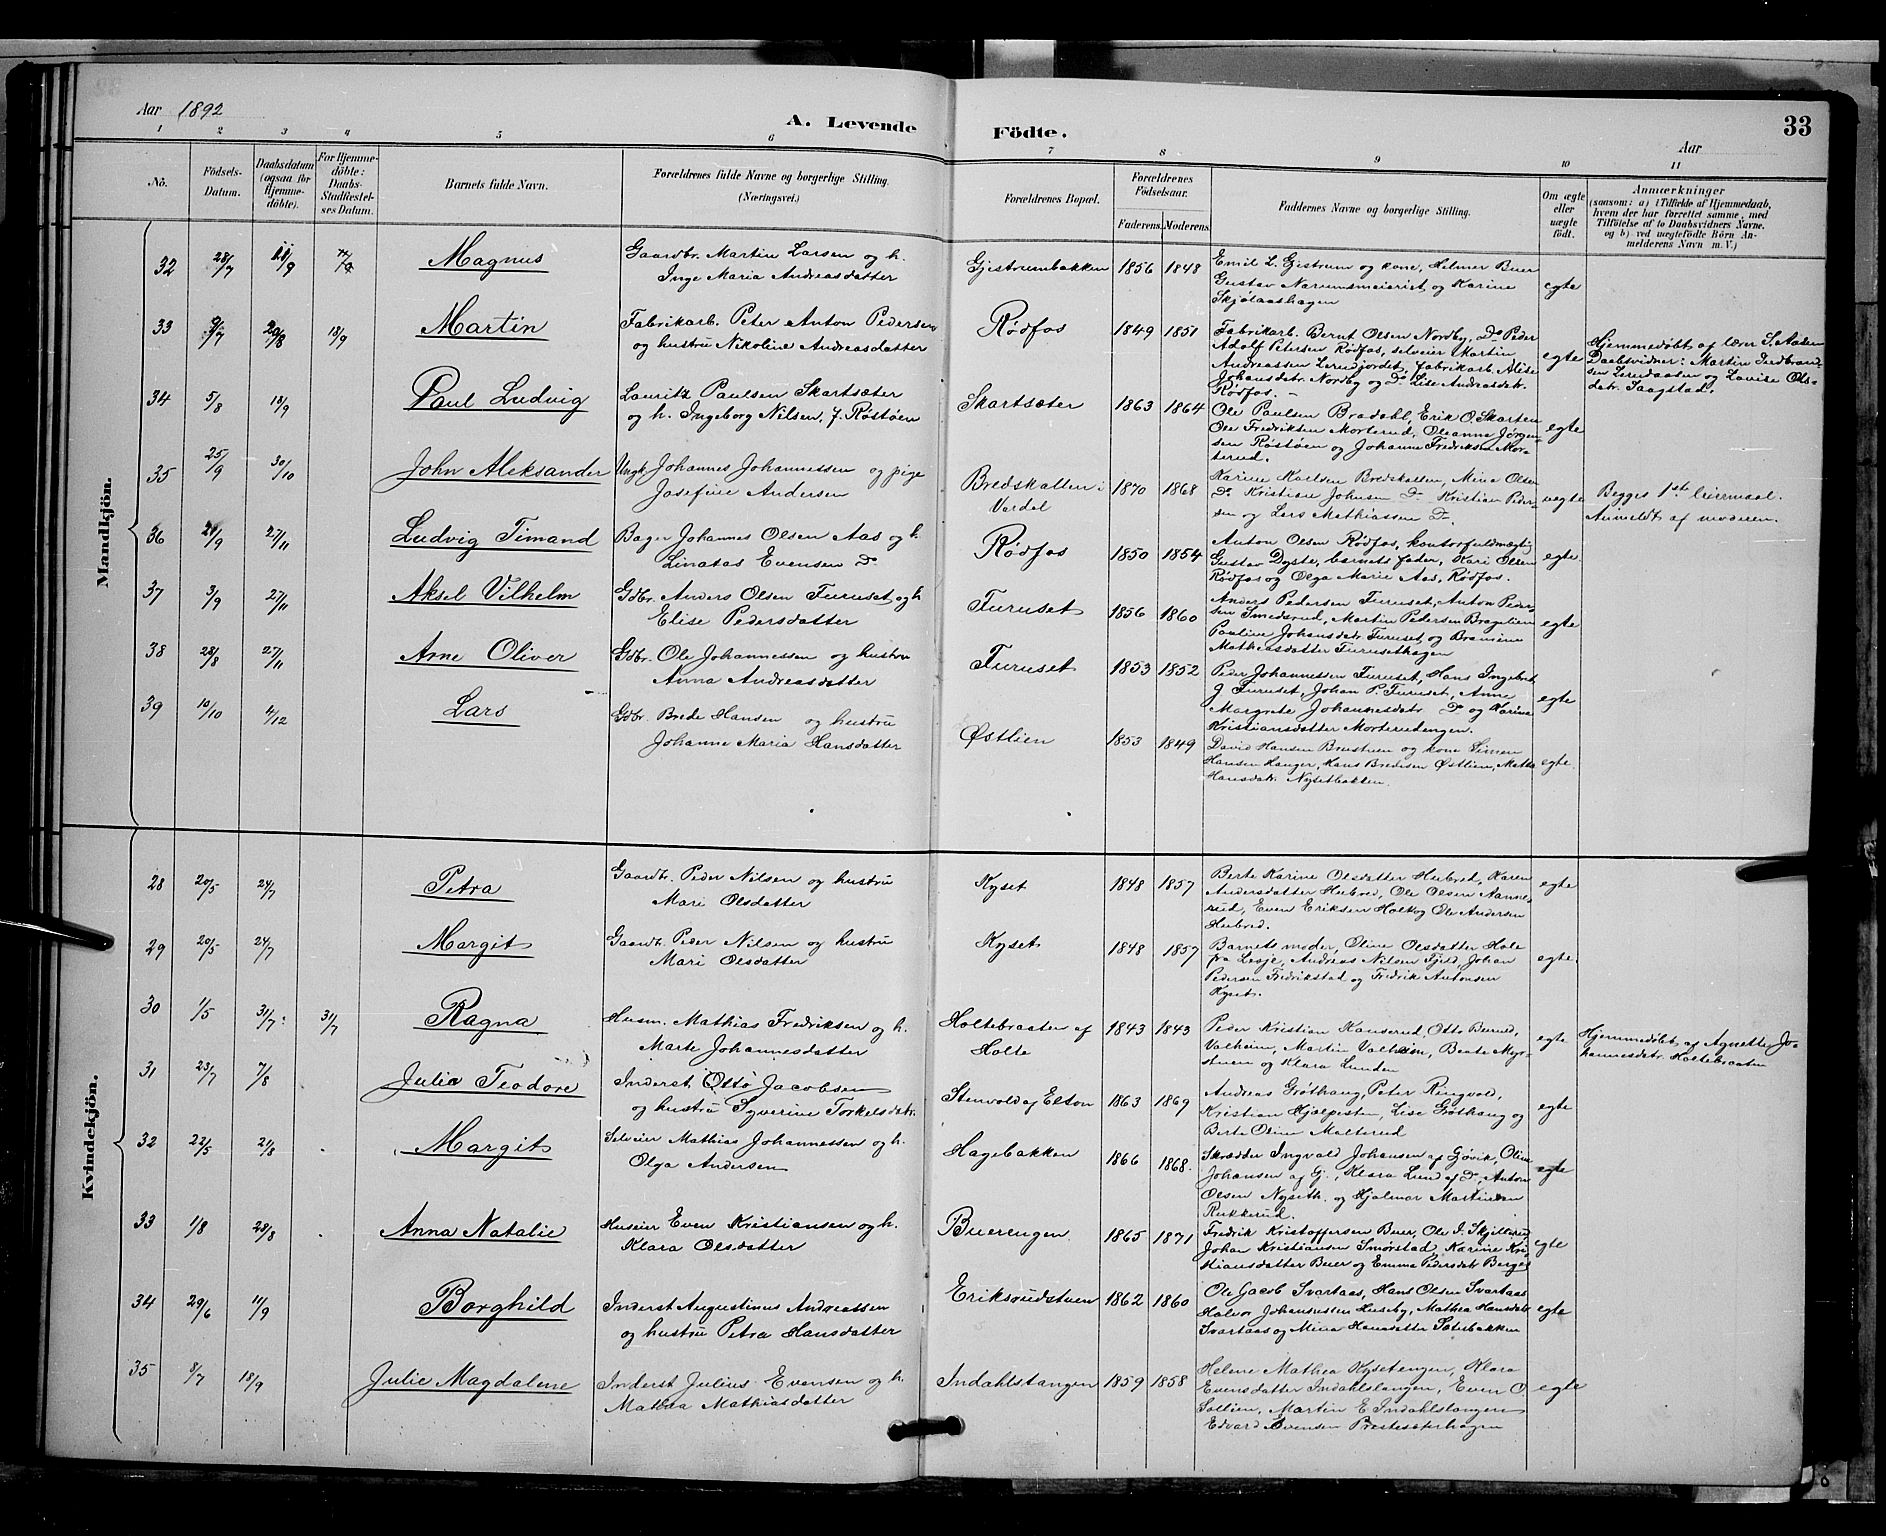 Aar 1892
A. Levende Födte.
Aar
33
1 2 3 4 5 6 7 8 9 10 11
No.
Födsels-Datum.
Daabsdatum (ogsaa for Hjemme-döbte).
For Hjemme-döbte: Daabs-Stadfæstel-ses Datum.
Barnets fulde Navn.
Forældrenes fulde Navne og borgerlige Stilling. (Næringsvei.)
Forældrenes Bopæl.
Forældrenes Födselsaar.
Faderens. Moderens.
Faddernes Navne og borgerlige Stilling.
Om ægte eller uægte födt.
Anmærkninger
(saasom: a) i Tilfælde af Hjemmedaab,
hvem der har forrettet samme, med
Tilföielse af to Daabsvidners Navne.
og b) ved uægtefödte Börn An-
melderens Navn m. V.)
Mandkjön.
32 28/7 11/9 Magnus
Gaardbr. Martin Larsen og h.
Inge Maria Andreasdatter
Gjestrumbakken 1856 1848
Emil L. Gjestrum og kone, Helmer Buer
Gustav Narumsmeieriet og Karine
Skjølaashagen
egte
33 9/7 20/8 18/9 Martin
Fabrikarb. Peter Anton Pedersen
og hustru Nikoline Andreasdatter
Rødfos 1849 1851
Fabrikarb. Bernt Olsen Nordby, Do Peder
Adolf Petersen Rødfos, selveier Martin
Andreassen Lerudjordet, fabrikarb. Alise
Johansdatr. Nordby og Do Lise Andreasdatr.
Rødfos. –
egte
Hjemmedøbt af lærer S. Aasen
Daabsvidner: Martin
sen Lerudaasen og Lovise Ols-
datr. Saagstad.
34 5/8 18/9 Paul Ludvig
Lauritz Paulsen Skartsæter
og h. Ingeborg Nilsen, f. Røstøen
Skartsæter 1863 1864
Ole Paulsen Bradahl, Erik O. Skarten
Ole Fredriksen Morterud, Oleanne Jørgen-
sen Røstøen og Johanne Fredriksen Mor-
terud.
egte
35 25/9 30/10 John Aleksander
Ungk. Johannes Johannessen og pige
Josefine Andersen
Bredskallen i
Vardal
1870 1868
Karine Karlsen Bredskallen, Mina Olsen
Do Kristian Johnsen Do Kristian Peder-
sen og Lars Mathiassen Do.
uegte
Begges 1ste leiermaal.
Anmeldt af moderen.
36 20/9 27/11 Ludvig Timand
Bager Johannes Olsen Aas og h.
Linatas Evensen Do
Rødfos 1850 1854
Anton Olsen Rødfos, kontorfuldmægtig
Gustav Dyste, barnets fader, Kari Olsen
Rødfos og Olga Marie Aas, Rødfos.
egte
37 3/9 27/11 Aksel Vilhelm
Gdbr. Anders Olsen Furuset og h
Elise Pedersdatter
Furuset 1856 1860
Anders Pedersen Furuset, Anton Peder-
sen Smedsrud, Martin Pedersen Bragelien
Pauline Johansdatr. Furuset og Bramine
Mathiasdatter Furusethagen
egte
38 28/8 27/11 Arne Oliver
Gdbr. Ole Johannessen og hustru
Anna Andreasdatter
Furuset 1853 1852
Peder Johannessen Furuset, Hans Ingebret
J Furuset, Johan P. Furuset, Anne
Margrete Johannesdatr. Do og Karine
Kristiansdatter Morterudengen.
egte
39 10/10 4/12 Lars
Gdbr. Brede Hansen og hustru
Johanne Maria Hansdatter
Østlien 1853 1849
David Hansen Brustuen og kone Simen
Hansen Hanger, Hans Bredesen Østlien, Mathe
Hansdatr. Nysetbakken.
egte.
Kvindekjön.
28 20/5 24/7 Petra
Gaardbr. Peder Nilsen og hustru
Mari Olsdatter
Kyset 1848 1857
Berte Karine Olsdatter Heibred, Karen
Andersdatter Heibred, Ole Olsen Aannes-
rud, Even Eriksen Holte og Ole Andersen
Heibred.
egte
29 20/5 24/7 Margit
Gaardbr. Peder Nilsen og hustru
Mari Olsdatter
Kyset 1848 1857
Barnets moder, Oline Olsdatter Hole
fra Lesje, Andreas Nilsen Fjeld, Johan
Pedersen Fredrikstad og Fredrik Antonsen
Kyset.
egte.
30 1/5 31/7 31/7 Ragna
Husm. Mathias Fredriksen og h.
Marte Johannesdatter
Holtebraaten af
Holte
1843 1843
Peder Kristian Hanserud, Otto Buerud,
Valheim, Martin Valheim, Beate Myr-
stuen og Klara Lunden
egte
Hjemmedøbt af Agnette Jo-
hannesdatr. Holtebraaten
31 23/7 7/8 Julie Teodore
Inderst Otto Jacobsen
og hustru Syverine Torkelsdatr.
Stenvold af Elton 1863 1869
Andreas Grøthaug, Peter Ringvold,
Kristian Hjælpesten, Lise Grøthaug og
Berte Oline Malterud
egte
32 22/5 21/8 Margit
Selveier Mathias Johannessen og h.
Olga Andersen
Hagebakken 1866 1868.
Skrædder Ingvald Johansen af Gjøvik, Oline
Johansen af Gj., Klara Lund af Do, Anton
Olsen Nyseth. og Hjalmar Martinsen
Rukkerud.
egte
33 1/8 28/8 Anna Natalie
Huseier Even Kristiansen og h.
Klara Olsdatter
Buerengen 1865 1871
Fredrik Kristoffersen Buer, Ole J. Skjillerud
Johan Kristiansen Smørstad, Karine Kri-
stiansdatter Buer og Emma Pedersdatr. Berger
egte
34 29/6 11/9 Borghild
Inderst Augustinus Andreassen
og hustru Petra Hansdatter
Eriksrudstuen 1862 1860
Ole Jacob Svartaas, Hans Olsen Svartaas
Halvor Johannessen Huseby, Mathea Hansdatr.
Svartaas og Mina Hansdatter Sæterbakken
egte
35 8/7 18/9 Julie Magdalene
Inderst Julius Evensen og h.
Mathea Mathiasdatter
Indahlstangen 1859 1858
Helene Mathea Kysetengen, Klara
Evensdatter Indahlslangen, Even O.
Sollien, Martin E. Indahlslangen
Edvard Evensen Prestesæterhagen
egte